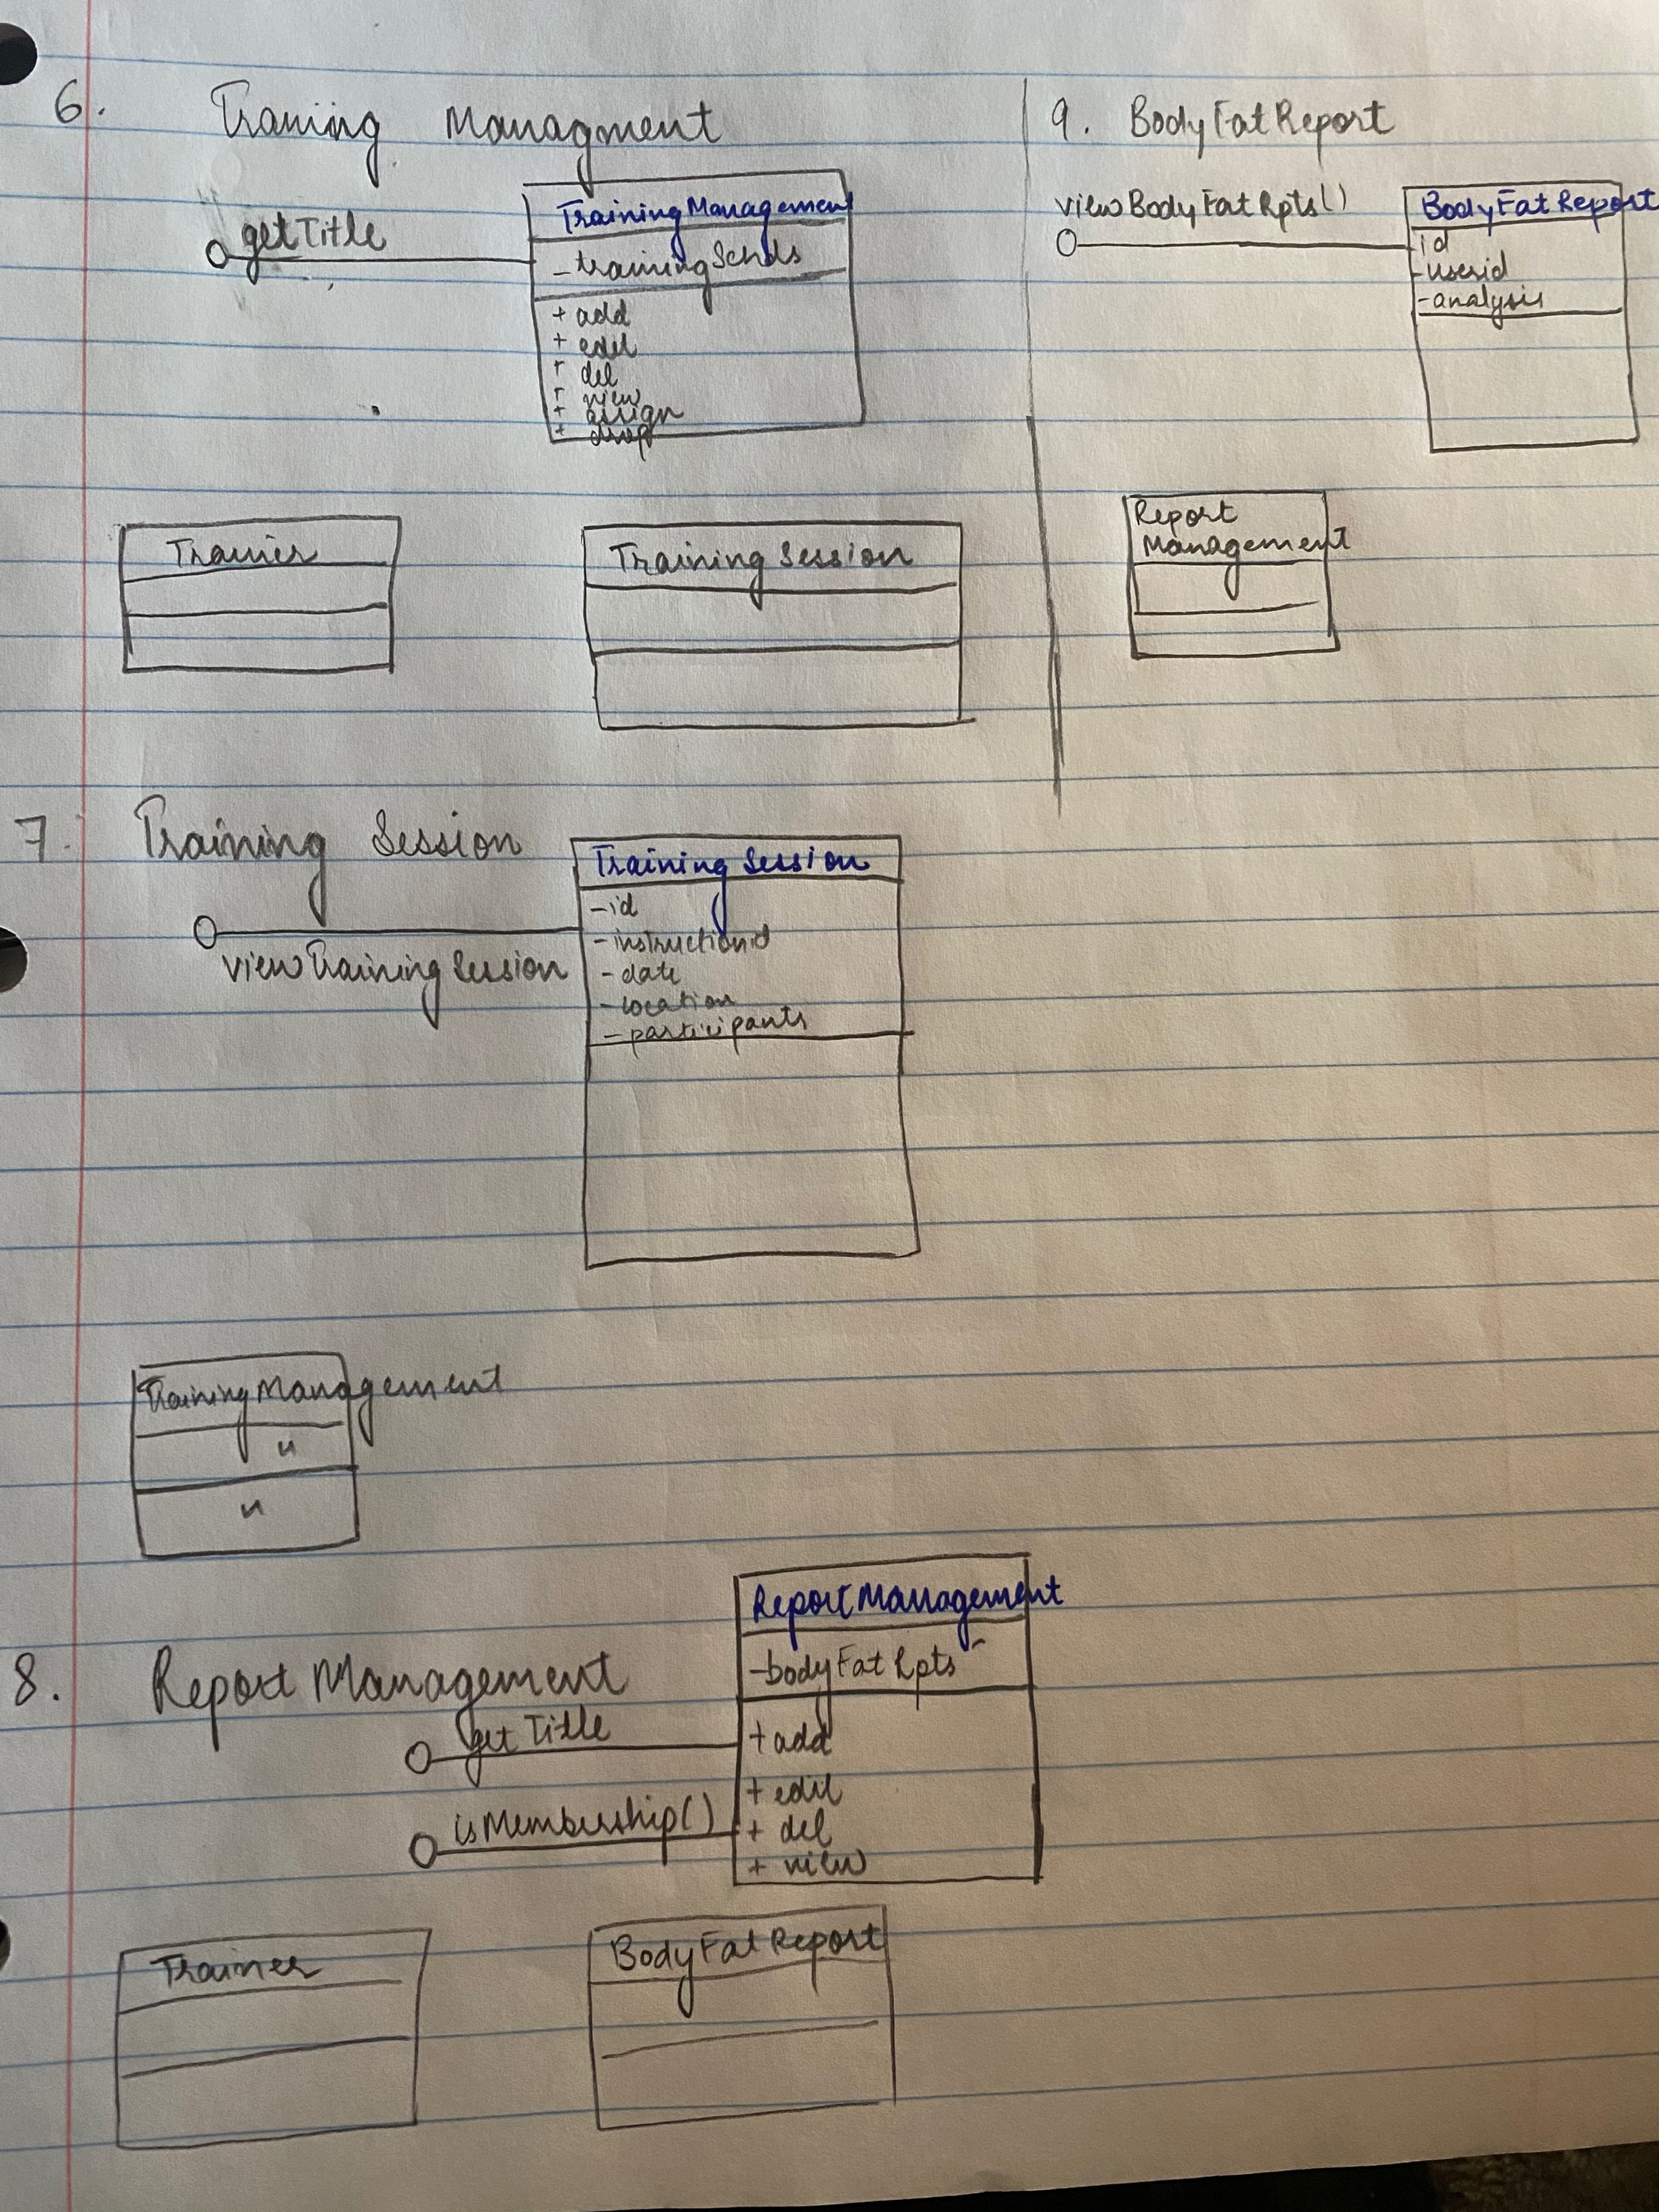 6. Traniing Managment
getTitle
TrainingManagement
- trainingSchds
+ add
+ edit
+ del
+ view
+ assign
+ drop
Trainer
Training Session
9. BodyFatReport
viewBodyFatRpts()
BodyFatReport
id
- userid
- analysis
Report
Management
7. Training Session
viewTrainingSession
Training Session
- id
- instructionid
- date
- location
- participants
TrainingManagement
"
"
8. Report Management
getTitle
isMembership()
ReportManagement
- bodyFatRpts
+ add
+ edit
+ del
+ view
Trainer
BodyFatReport